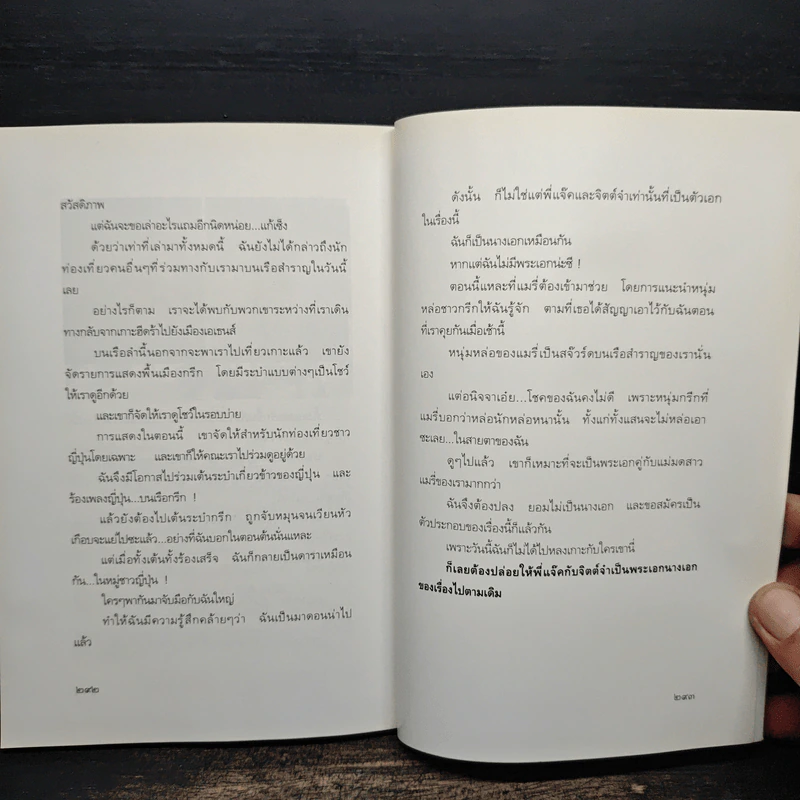 สวัสดิภาพ
แต่ฉันจะขอเล่าอะไรแถมอีกนิดหน่อย...แก้เซ็ง
ด้วยว่าเท่าที่เล่ามาทั้งหมดนี้ ฉันยังไม่ได้กล่าวถึงนัก
ท่องเที่ยวคนอื่นๆที่ร่วมทางกับเรามาบนเรือสำราญในวันนี้
เลย
อย่างไรก็ตาม เราจะได้พบกับพวกเขาระหว่างที่เราเดิน
ทางกลับจากเกาะฮีดร้าไปยังเมืองเอเธนส์
บนเรือลำนี้นอกจากจะพาเราไปเที่ยวเกาะแล้ว เขายัง
จัดรายการแสดงพื้นเมืองกรีก โดยมีระบำแบบต่างๆเป็นโชว์
ให้เราดูอีกด้วย
และเขาก็จัดให้เราดูโชว์ในรอบบ่าย
การแสดงในตอนนี้ เขาจัดให้สำหรับนักท่องเที่ยวชาว
ญี่ปุ่นโดยเฉพาะ และเขาก็ให้คณะเราไปร่วมดูอยู่ด้วย
ฉันจึงมีโอกาสไปร่วมเต้นระบำเกี่ยวข้าวของญี่ปุ่น และ
ร้องเพลงญี่ปุ่น...บนเรือกรีก !
แล้วยังต้องไปเต้นระบำกรีก ถูกจับหมุนจนเวียนหัว
เกือบจะแย่ไปซะแล้ว...อย่างที่ฉันบอกในตอนต้นนั่นแหละ
แต่เมื่อทั้งเต้นทั้งร้องเสร็จ ฉันก็กลายเป็นดาราเหมือน
กัน...ในหมู่ชาวญี่ปุ่น !
ใครๆพากันมาจับมือกับฉันใหญ่
ทำให้ฉันมีความรู้สึกคล้ายๆว่า ฉันเป็นมาดอนน่าไป
แล้ว
๒๙๒
ดังนั้น ก็ไม่ใช่แต่พี่แจ๊คและจิตต์จำเท่านั้นที่เป็นตัวเอก
ในเรื่องนี้
ฉันก็เป็นนางเอกเหมือนกัน
หากแต่ฉันไม่มีพระเอกน่ะซี !
ตอนนี้แหละที่แมรี่ต้องเข้ามาช่วย โดยการแนะนำหนุ่ม
หล่อชาวกรีกให้ฉันรู้จัก ตามที่เธอได้สัญญาเอาไว้กับฉันตอน
ที่เราคุยกันเมื่อเช้านี้
หนุ่มหล่อของแมรี่เป็นสจ๊วร์ดบนเรือสำราญของเรานั่น
เอง
แต่อนิจจาเอ๋ย...โชคของฉันคงไม่ดี เพราะหนุ่มกรีกที่
แมรี่บอกว่าหล่อนักหล่อหนานั้น ทั้งแก่ทั้งแสนจะไม่หล่อเอา
ซะเลย...ในสายตาของฉัน
ดูๆไปแล้ว เขาก็เหมาะที่จะเป็นพระเอกคู่กับแม่มดสาว
แมรี่ของเรามากกว่า
ฉันจึงต้องปลง ยอมไม่เป็นนางเอก และขอสมัครเป็น
ตัวประกอบของเรื่องนี้ก็แล้วกัน
เพราะวันนี้ฉันก็ไม่ได้ไปหลงเกาะกับใครเขานี่
ก็เลยต้องปล่อยให้พี่แจ๊คกับจิตต์จำเป็นพระเอกนางเอก
ของเรื่องไปตามเดิม
๒๙๓